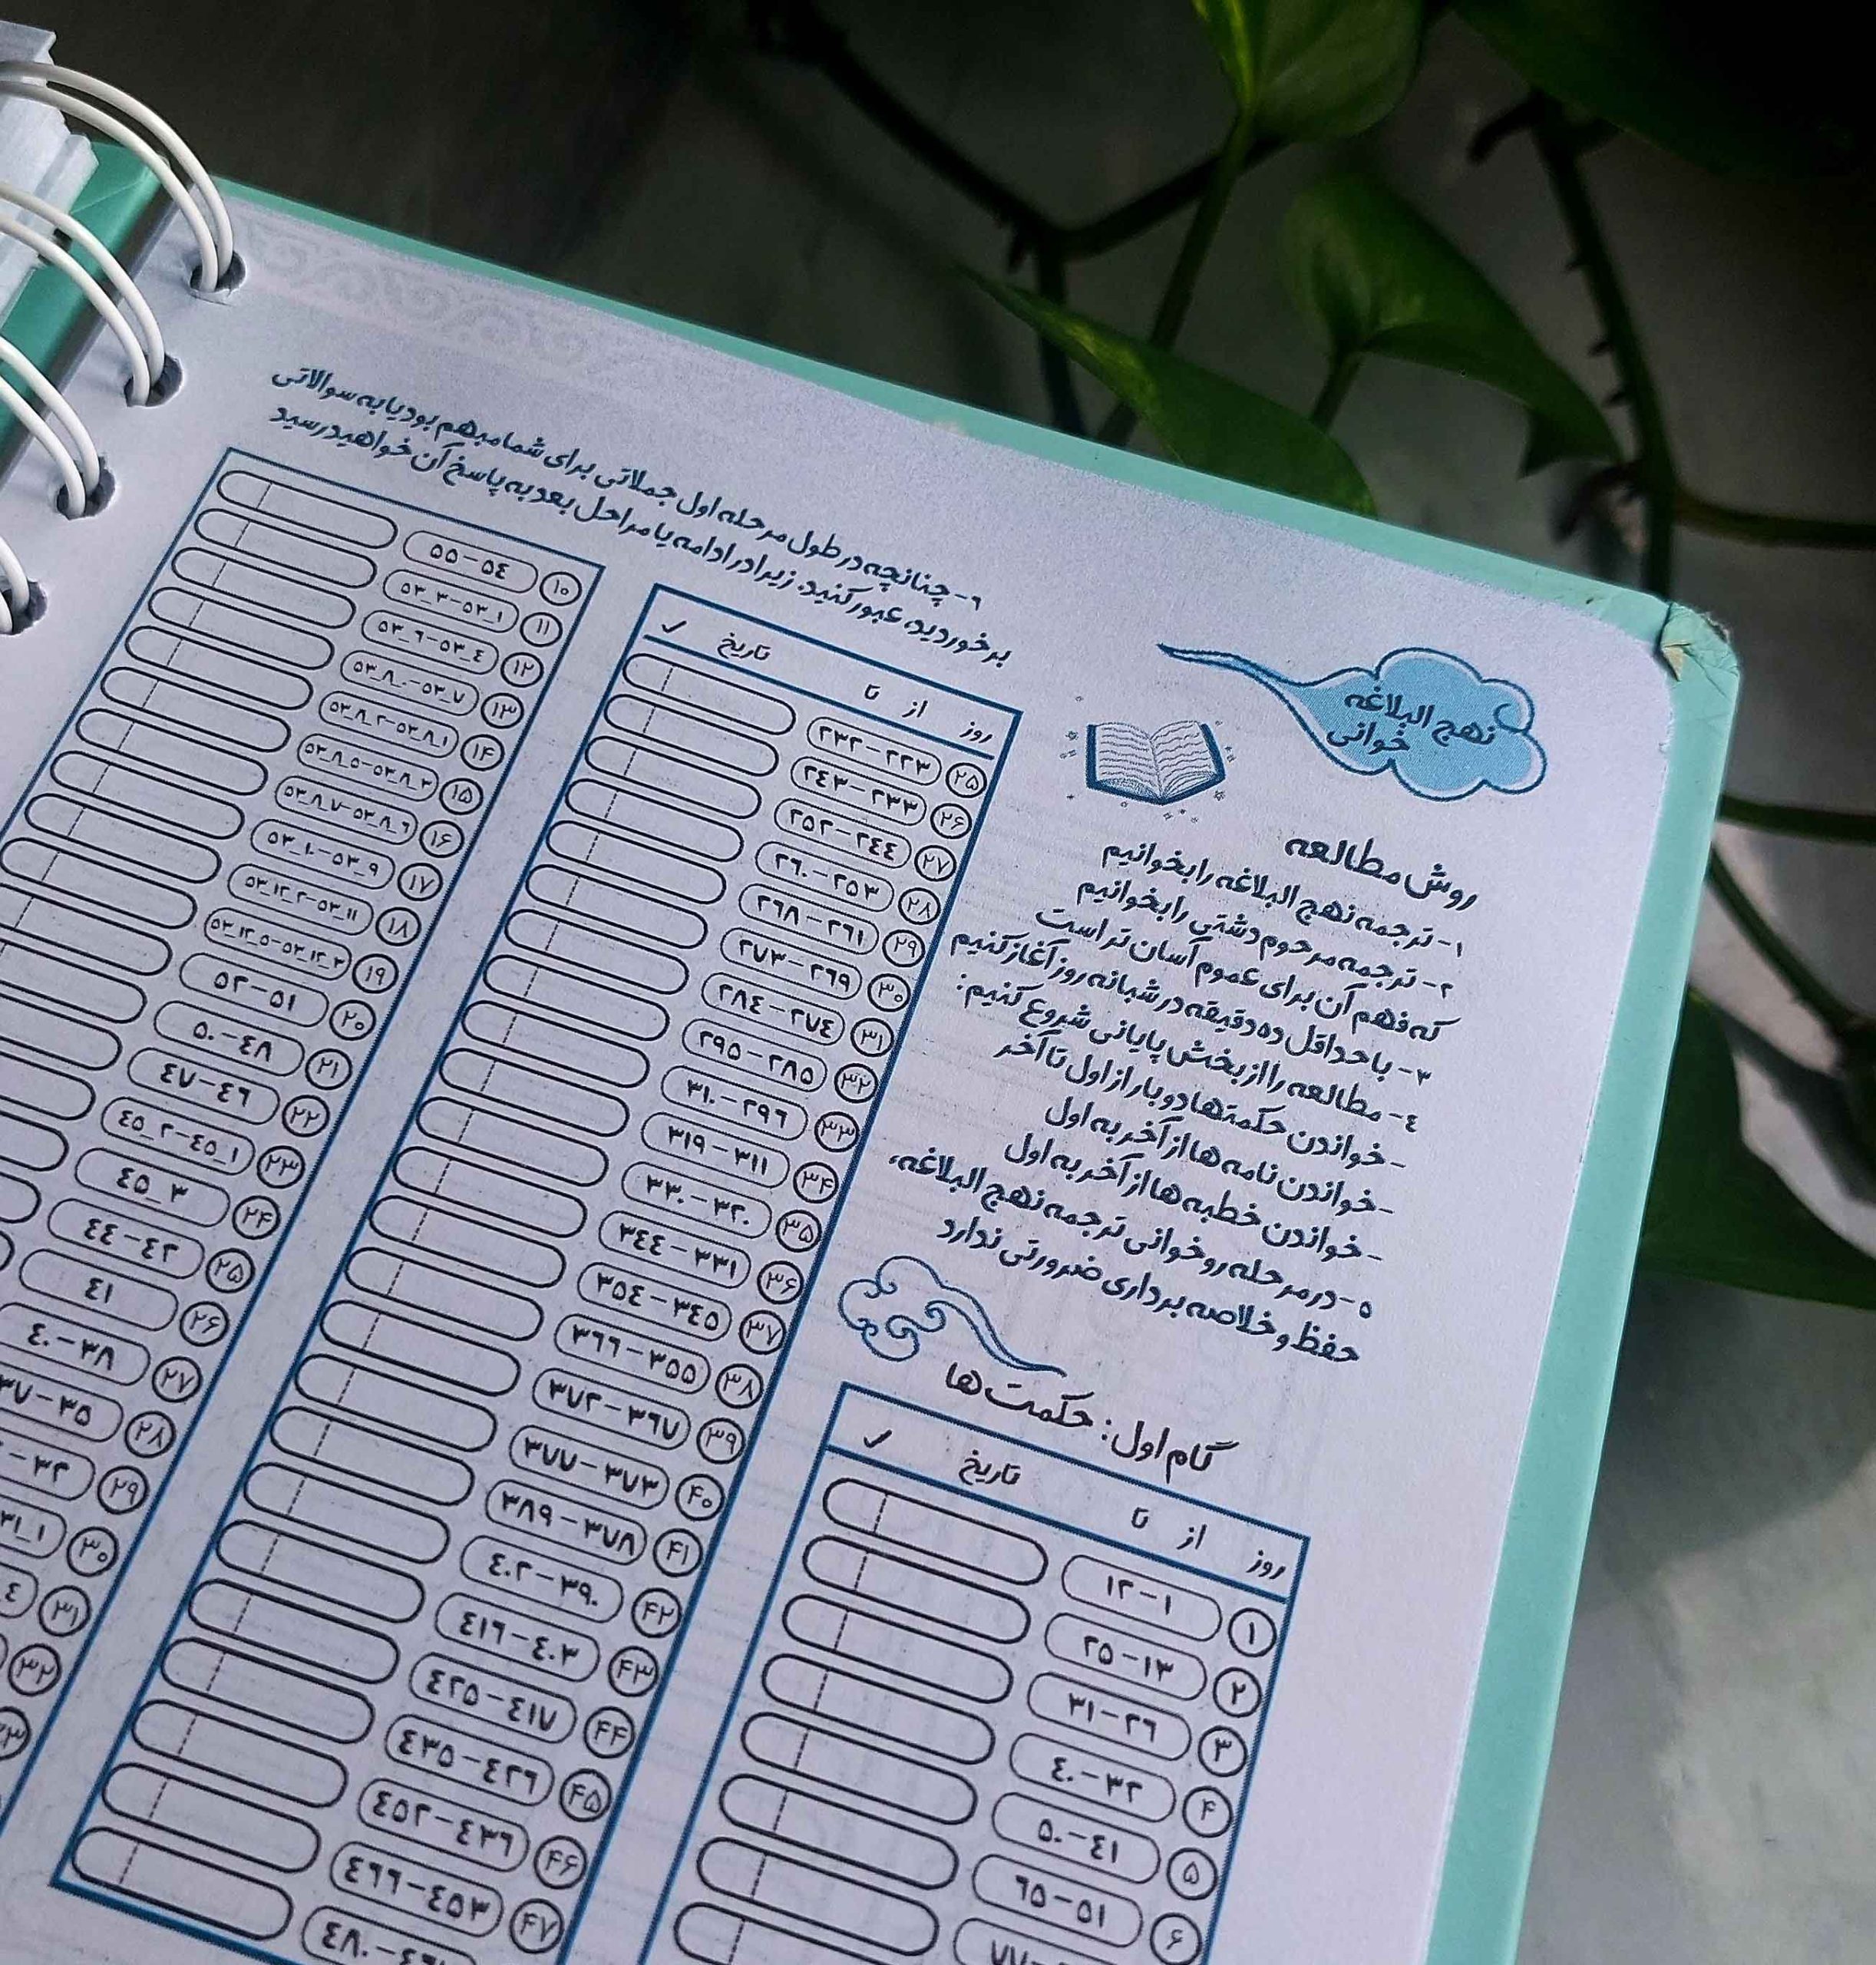 نهج البلاغه
خوانی
روش مطالعه
۱- ترجمه نهج البلاغه را بخوانیم
۲- ترجمه مرحوم دشتی را بخوانیم
که فهم آن برای عموم آسان تر است
۳- با حداقل ده دقیقه در شبانه روز آغاز کنیم
٤- مطالعه را از بخش پایانی شروع کنیم:
- خواندن حکمتها دو بار از اول تا آخر
- خواندن نامه ها از آخر به اول
- خواندن خطبه ها از آخر به اول
۵- در مرحله روخوانی ترجمه نهج البلاغه،
حفظ و خلاصه برداری ضرورتی ندارد
گام اول: حکمت ها
روز از تا تاریخ ✓
۱ ۱-۱۲
۲ ۱۳-۲۵
۳ ۲۶-۳۱
۴ ۳۲-٤۰
۵ ٤۱-۵۰
۶ ۵۱-۶۵
۶- چنانچه در طول مرحله اول جملاتی برای شما مبهم بود یا به سوالاتی
برخوردید، عبور کنید، زیرا در ادامه یا مراحل بعد به پاسخ آن خواهید رسید
روز از تا تاریخ ✓
۲۵ ۲۲۳-۲۳۲
۲۶ ۲۳۳-۲٤۳
۲۷ ۲٤٤-۲۵۲
۲۸ ۲۵۳-۲۶۰
۲۹ ۲۶۱-۲۶۸
۳۰ ۲۶۹-۲۷۳
۳۱ ۲۷٤-۲۸٤
۳۲ ۲۸۵-۲۹۵
۳۳ ۲۹۶-۳۱۰
۳۴ ۳۱۱-۳۱۹
۳۵ ۳۲۰-۳۳۰
۳۶ ۳۳۱-۳٤٤
۳۷ ۳٤۵-۳۵٤
۳۸ ۳۵۵-۳۶۶
۳۹ ۳۶۷-۳۷۲
۴۰ ۳۷۳-۳۷۷
۴۱ ۳۷۸-۳۸۹
۴۲ ۳۹۰-٤۰۲
۴۳ ٤۰۳-٤۱۶
۴۴ ٤۱۷-٤۲۵
۴۵ ٤۲۶-٤۳۵
۴۶ ٤۳۶-٤۵۲
۴۷ ٤۵۳-٤۶۶
۱۰ ۵٤-۵۵
۱۱ ۵۳_۱-۵۳_۳
۱۲ ۵۳_٤-۵۳_۶
۱۳ ۵۳_۷-۵۳_۸_۰
۱۴ ۵۳_۸_۱-۵۳_۸_۲
۱۵ ۵۳_۸_۳-۵۳_۸_۵
۱۶ ۵۳_۸_۶-۵۳_۸_۷
۱۷ ۵۳_۹-۵۳_۱۰
۱۸ ۵۳_۱۱-۵۳_۱۲_۲
۱۹ ۵۳_۱۲_۳-۵۳_۱۲_۵
۲۰ ۵۱-۵۲
۲۱ ٤۸-۵۰
۲۲ ٤۶-٤۷
۲۳ ٤۵_۱-٤۵_۲
۲۴ ٤۵_۳
۲۵ ٤۲-٤٤
۲۶ ٤۱
۲۷ ۳۸-٤۰
۲۸ ۳۵-۳۷
۲۹ ۳۲-
۳۰
۳۱
۳۲